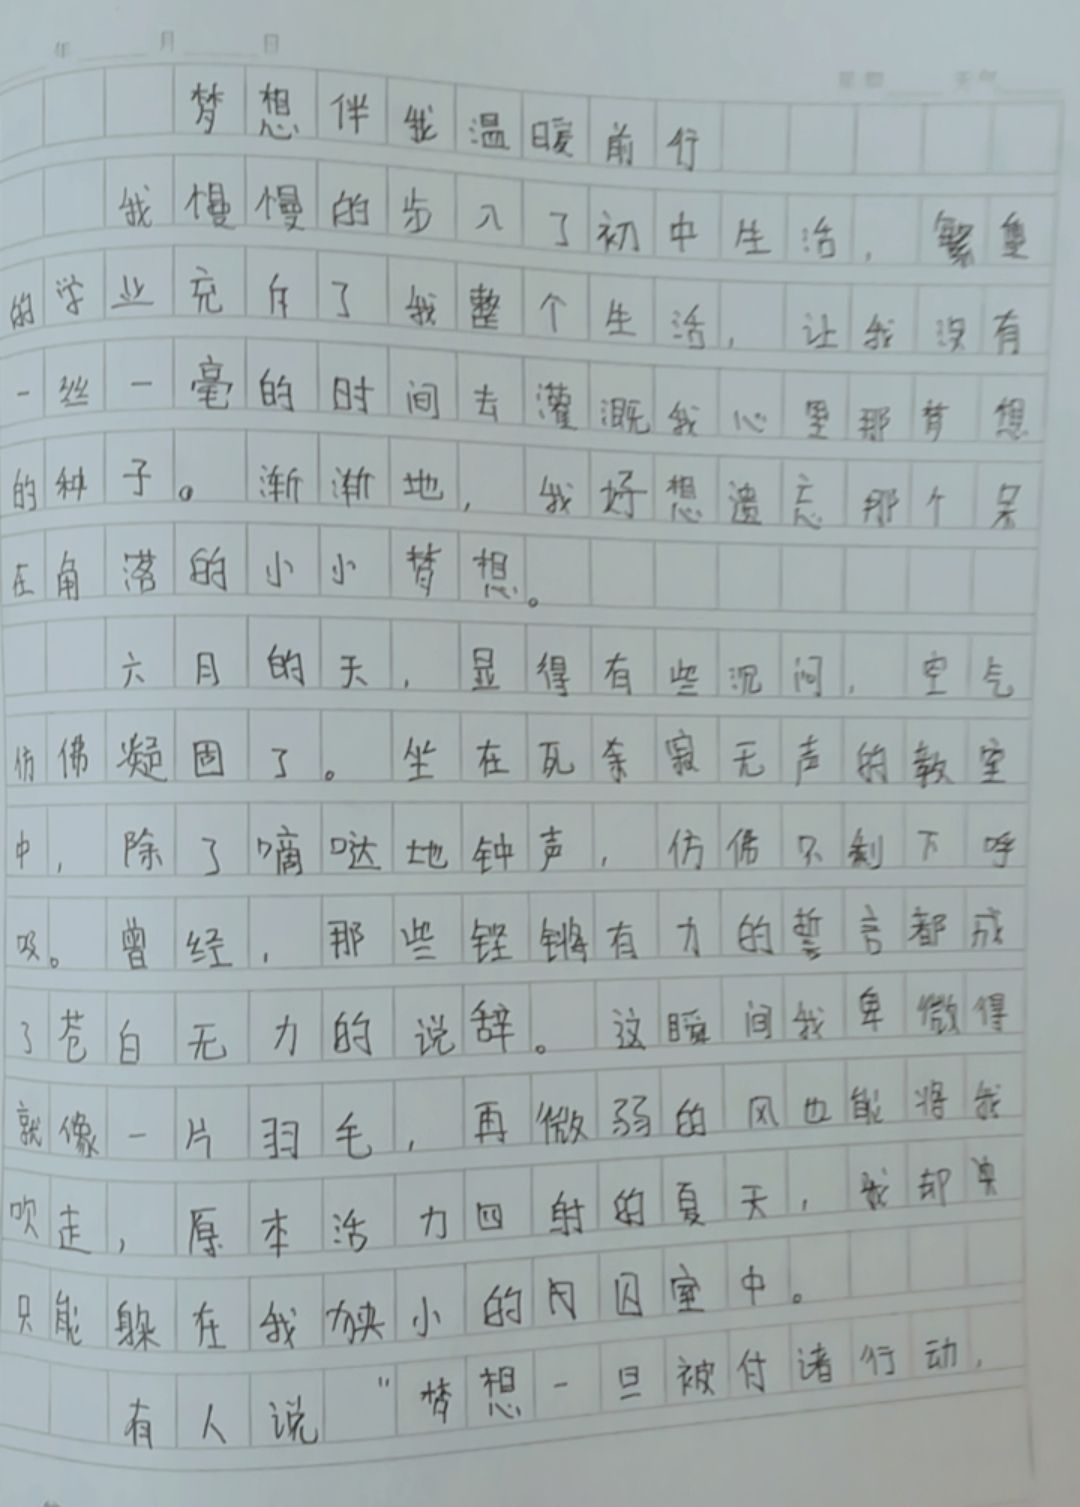 年 月 日
星期 天气
梦想伴我温暖前行
我慢慢的步入了初中生活，繁重
的学业充斥了我整个生活，让我没有
一丝一毫的时间去灌溉我心里那梦想
的种子。渐渐地，我好想遗忘那个呆
在角落的小小梦想。
六月的天，显得有些沉闷，空气
仿佛凝固了。坐在瓦余寂无声的教室
中，除了嘀哒地钟声，仿佛只剩下呼
吸。曾经，那些铿锵有力的誓言都成
了苍白无力的说辞。这瞬间我卑微得
就像一片羽毛，再微弱的风也能将我
吹走，原本活力四射的夏天，我却
只能躲在我狭小的囚室中。
有人说"梦想一旦被付诸行动，